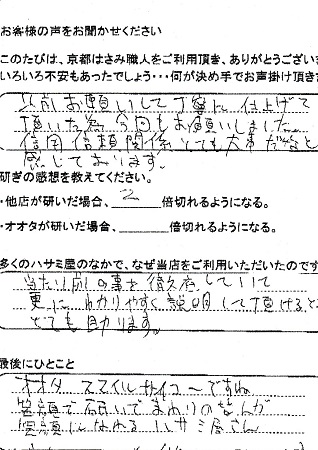 お客様の声をお聞かせください
このたびは、京都はさみ職人をご利用頂き、ありがとうござい
いろいろ不安もあったでしょう・・・何が決め手でお声掛け頂きま
以前お願いして丁寧に仕上げて
頂いた為今回もお願いしました
信用信頼関係とても大事だなと
感じております。
研ぎの感想を教えてください。
・他店が研いだ場合、2倍切れるようになる。
・オオタが研いだ場合、倍切れるようになる。
多くのハサミ屋のなかで、なぜ当店をご利用いただいたのです
当たり前の事を備え在していて
更にわかりやすく説明して頂けると
とても助ります。
最後にひとこと
オオタ スマイルサイコ〜ですね
笑顔で研いでまわりのみんが
笑顔になれるハサミ屋さん